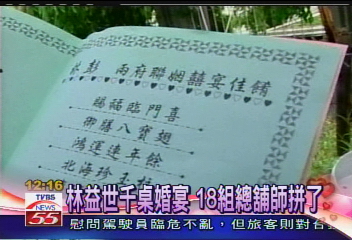 林 彭 兩府聯姻囍宴佳餚
臨門喜
御膳八寶翅
鴻運逹年餘
北海珍
12:16
TVBS
NEWS
55
林益世千桌婚宴 18組總舖師拼了
慰問駕駛員臨危不亂，但旅客則對台